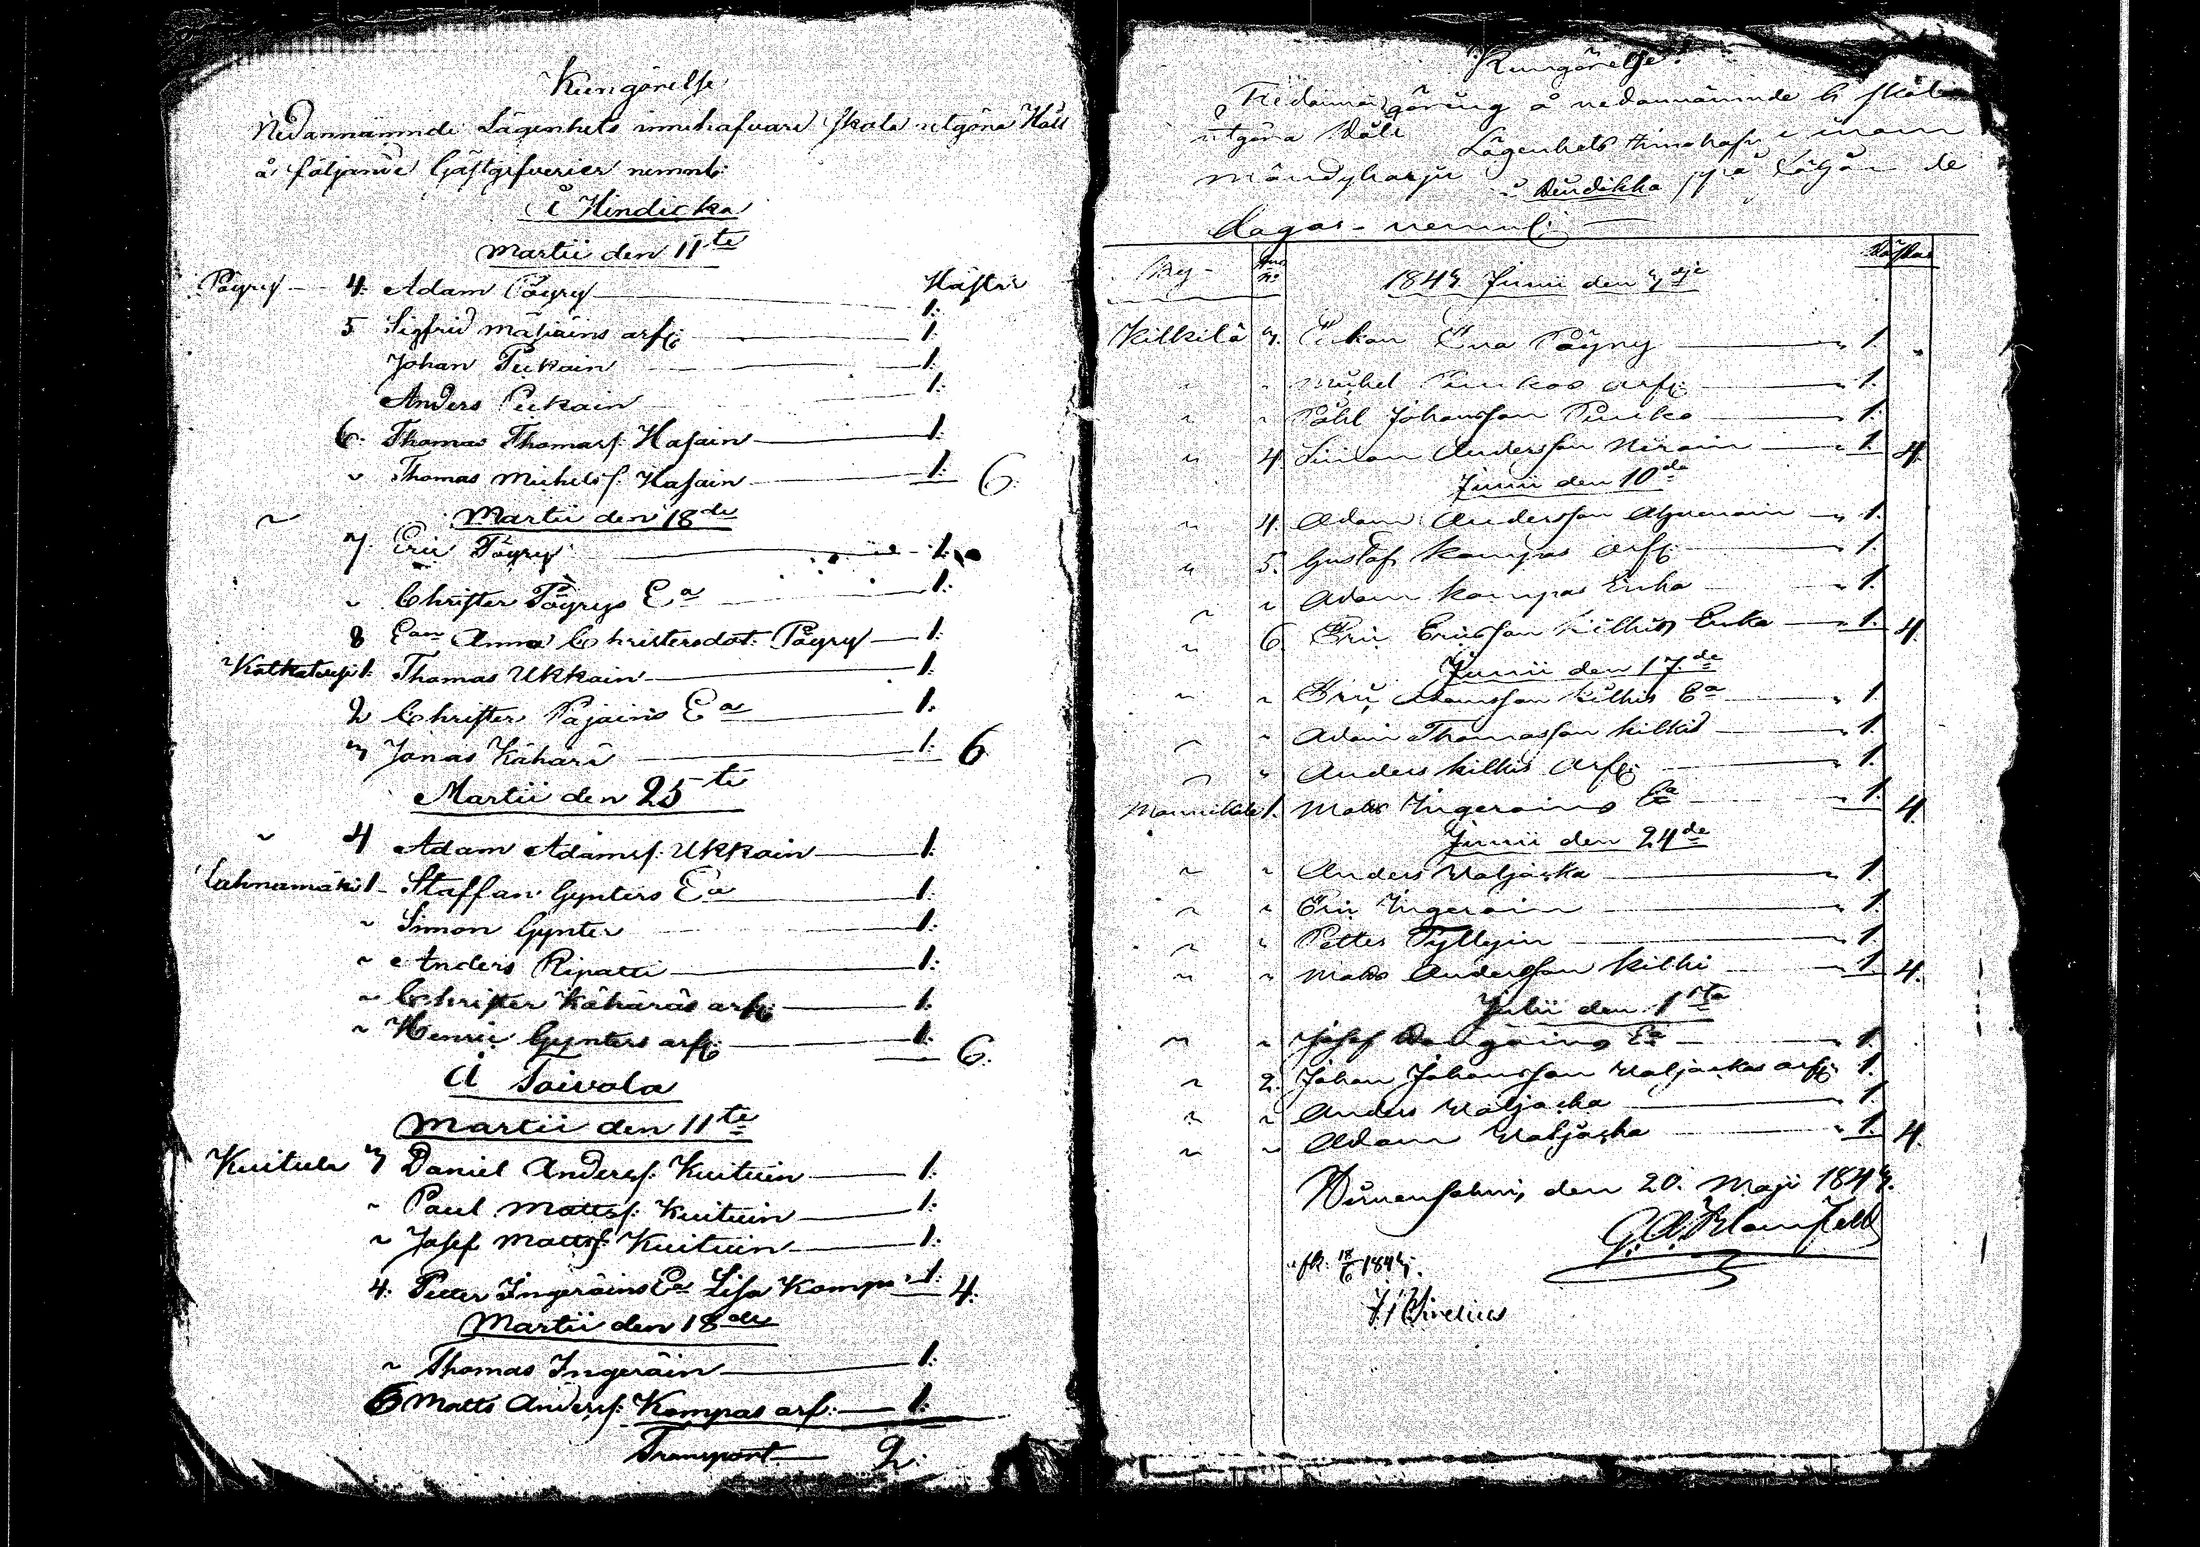 Kungörelse
Nedannämnde Lägenhets innehafvare skola utgöra Håll
å följande Gästgifverier nemnl:
å Hindicka
Martii den 11te
Hästar
Pöyry 4. Adam Pöyry 1.
5 Sigfrid arfv: 1.
Johan Pukain 1.
Anders Pukain 1.
6. Thomas Thomass: Hasain 1.
" Thomas Michelss: Hasain 1. 6.
Martii den 18de
" 7. Eric Pöyry 1.
" Christer Pöyrys Ea 1.
8 Ean Anna Christersdot: Pöyry 1.
1. Thomas Ukkain 1.
2 Christer Pajains Ea 1.
3 Jonas Kähäri 1. 6.
Martii den 25te
" 4 Adam Adamss: Ukkain 1.
Lahnamäki 1 Staffan Gynters Ea 1.
" Simon Gynter 1.
" Anders Ripatti 1.
" Christer Kähäräs arfv: 1.
" Henric Gynters arfv: 1. 6.
å Toivola
Martii den 11te
Kuitula 3 Daniel Anderss: Kuituin 1.
" Paul Mattss: Kuituin 1.
" Josef Mattss: Kuituin 1.
4. Petter Ingeräins Ea Lisa Kompa 1. 4.
Martii den 18de
" Thomas Ingeräin 1.
6 Matts Anderss: Kompas arf: 1.
Transport 2.
Kungörelse!
å nedannämnde
utgöra Håll Lägenhets innehafv: inom
Mändyharju
dagar nemnl:
By No Hästar
1843 Junii den 3dje
Kilkilä 3. Enkan Eva Pöyry " 1.
" " Michel arfv: " 1.
" " Påhl Johansson " 1.
" 4 Simon Andersson " 1. 4.
Junii den 10de
" 4. Adam Andersson " 1.
" 5. Gustaf Kompas arfv: " 1.
" " Adam Kompas Enka " 1.
" 6. Eric Ericsson Kilkis Enka " 1. 4.
Junii den 17de
" " Eric Adamsson Kilkis Ea " 1.
" " Adam Thomasson Kilkis " 1.
" " Anders Kilkis arfv: " 1.
1. Matts Ingerains Ea " 1. 4.
Junii den 24de
" " Anders Waljacka " 1.
" " Eric Ingerain " 1.
" " Petter Pyllyin " 1.
" " Matts Andersson Kilki " 1. 4.
Julii den 1sta
" " Josef Ea " 1.
" 2. Johan Johansson Waljackas arfv: 1.
" " Anders Waljacka 1.
" " Adam Waljacka " 1. 4.
den 20. Maji 1843.
18/6 1843.